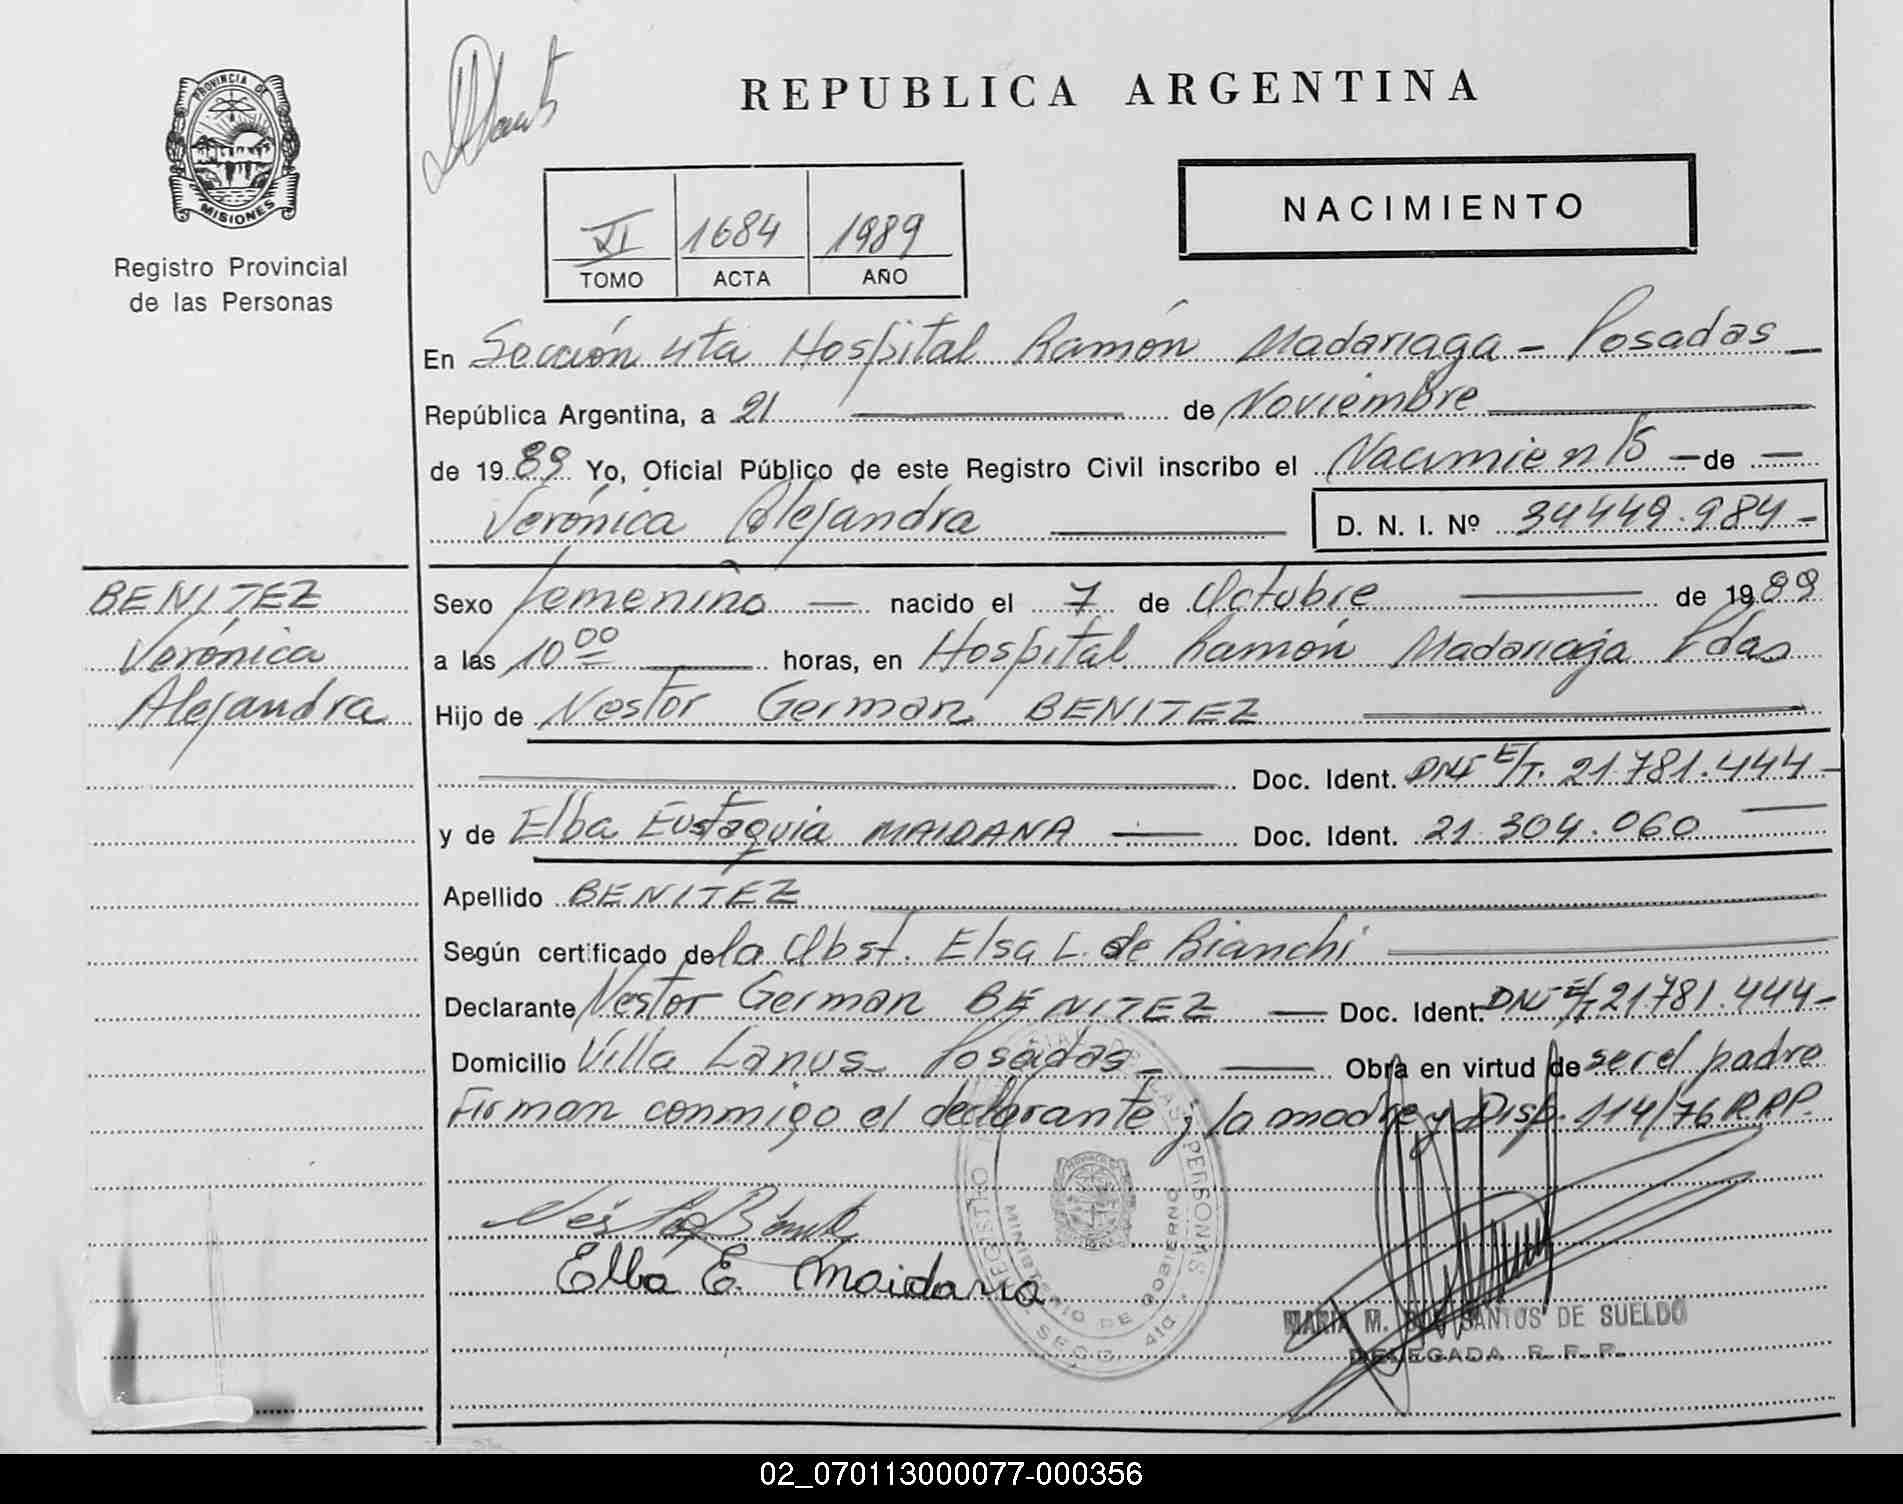 REPUBLICA ARGENTINA
PROVINCIA DE
MISIONES
Registro Provincial
de las Personas
VI 1684 1989
TOMO ACTA AÑO
NACIMIENTO
En Sección 4ta Hospital Ramón Madariaga - Posadas
República Argentina, a 21 de Noviembre
de 1989 Yo, Oficial Público de este Registro Civil inscribo el Nacimiento de
Verónica Alejandra D. N. I. Nº 34449.984-
BENITEZ
Verónica
Alejandra
Sexo femenino nacido el 7 de Octubre de 1989
a las 10 00 horas, en Hospital Ramón Madariaga Pdas
Hijo de Nestor German BENITEZ
Doc. Ident. DNI E/T. 21.781.444-
y de Elba Eustaquia MAIDANA Doc. Ident. 21.304.060
Apellido BENITEZ
Según certificado de la Obst. Elsa L. de Bianchi
Declarante Nestor German BENITEZ Doc. Ident. DNI E/T 21.781.444-
Domicilio Villa Lanus Posadas Obra en virtud de ser el padre
Firman conmigo el declarante y la madre y Disp. 114/76 R.P.P.
Elba E. Maidana
REGISTRO DE LAS PERSONAS
MINISTERIO DE GOBIERNO
SECC. 4ta.
MARIA M. DOS SANTOS DE SUELDO
DELEGADA R. P. P.
02_070113000077-000356